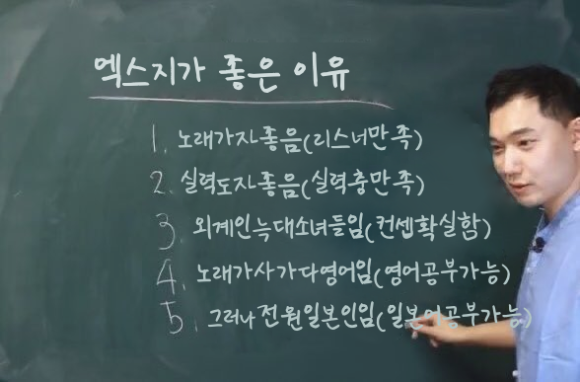 엑스지가 좋은 이유
1. 노래가자좋음(리스너만족)
2. 실력도자좋음(실력충만족)
3. 외계인늑대소녀들임(컨셉확실함)
4. 노래가사가다영어임(영어공부가능)
5. 그러나전원일본인임(일본어공부가능)